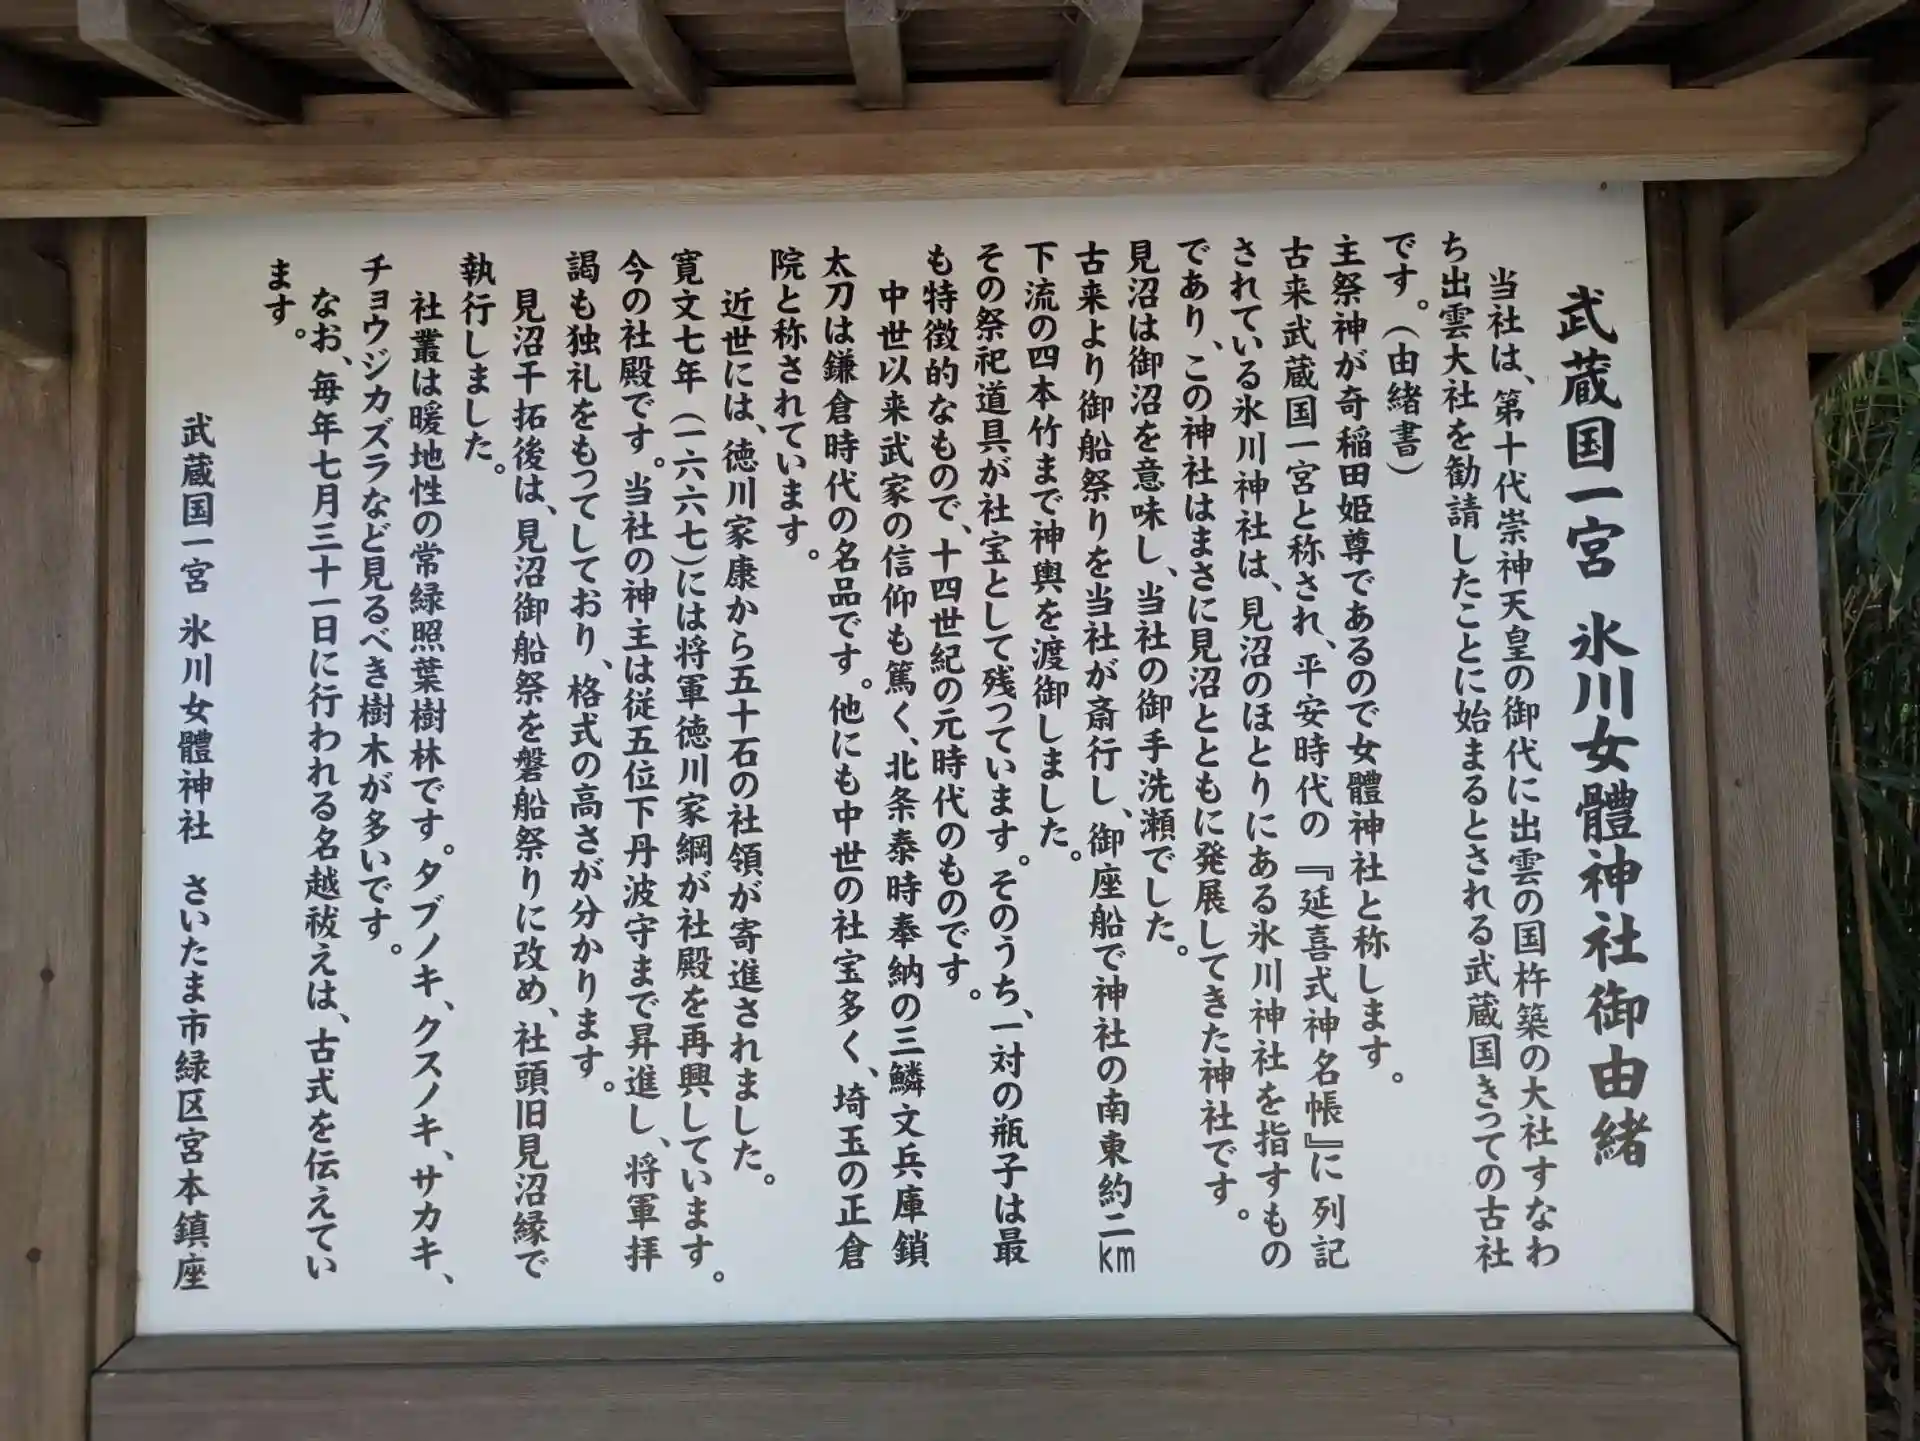 武蔵国一宮 氷川女體神社御由緒
当社は、第十代崇神天皇の御代に出雲の国杵築の大社すなわ
ち出雲大社を勧請したことに始まるとされる武蔵国きっての古社
です。(由緒書)
主祭神が奇稲田姫尊であるので女體神社と称します。
古来武蔵国一宮と称され、平安時代の『延喜式神名帳』に列記
されている氷川神社は、見沼のほとりにある氷川神社を指すもの
であり、この神社はまさに見沼とともに発展してきた神社です。
見沼は御沼を意味し、当社の御手洗瀬でした。
古来より御船祭りを当社が斎行し、御座船で神社の南東約二km
下流の四本竹まで神輿を渡御しました。
その祭祀道具が社宝として残っています。そのうち、一対の瓶子は最
も特徴的なもので、十四世紀の元時代のものです。
中世以来武家の信仰も篤く、北条泰時奉納の三鱗文兵庫鎖
太刀は鎌倉時代の名品です。他にも中世の社宝多く、埼玉の正倉
院と称されています。
近世には、徳川家康から五十石の社領が寄進されました。
寛文七年(一六六七)には将軍徳川家綱が社殿を再興しています。
今の社殿です。当社の神主は従五位下丹波守まで昇進し、将軍拝
謁も独礼をもってしており、格式の高さが分かります。
見沼干拓後は、見沼御船祭を磐船祭りに改め、社頭旧見沼縁で
執行しました。
社叢は暖地性の常緑照葉樹林です。タブノキ、クスノキ、サカキ、
チョウジカズラなど見るべき樹木が多いです。
なお、毎年七月三十一日に行われる名越祓えは、古式を伝えてい
ます。
武蔵国一宮 氷川女體神社 さいたま市緑区宮本鎮座